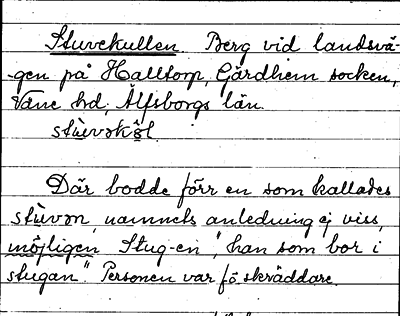 Stuvekullen. Berg vid landsvä-
-gen på Halltorp, Gärdhem socken,
Väne hd, Älfsborgs län.
stùvəkùl.
Där bodde förr en som kallades
stùvən, namnets anledning ej viss,
möjligen "Stug-en", "han som bor i
stugan". Personen var fö. skräddare.